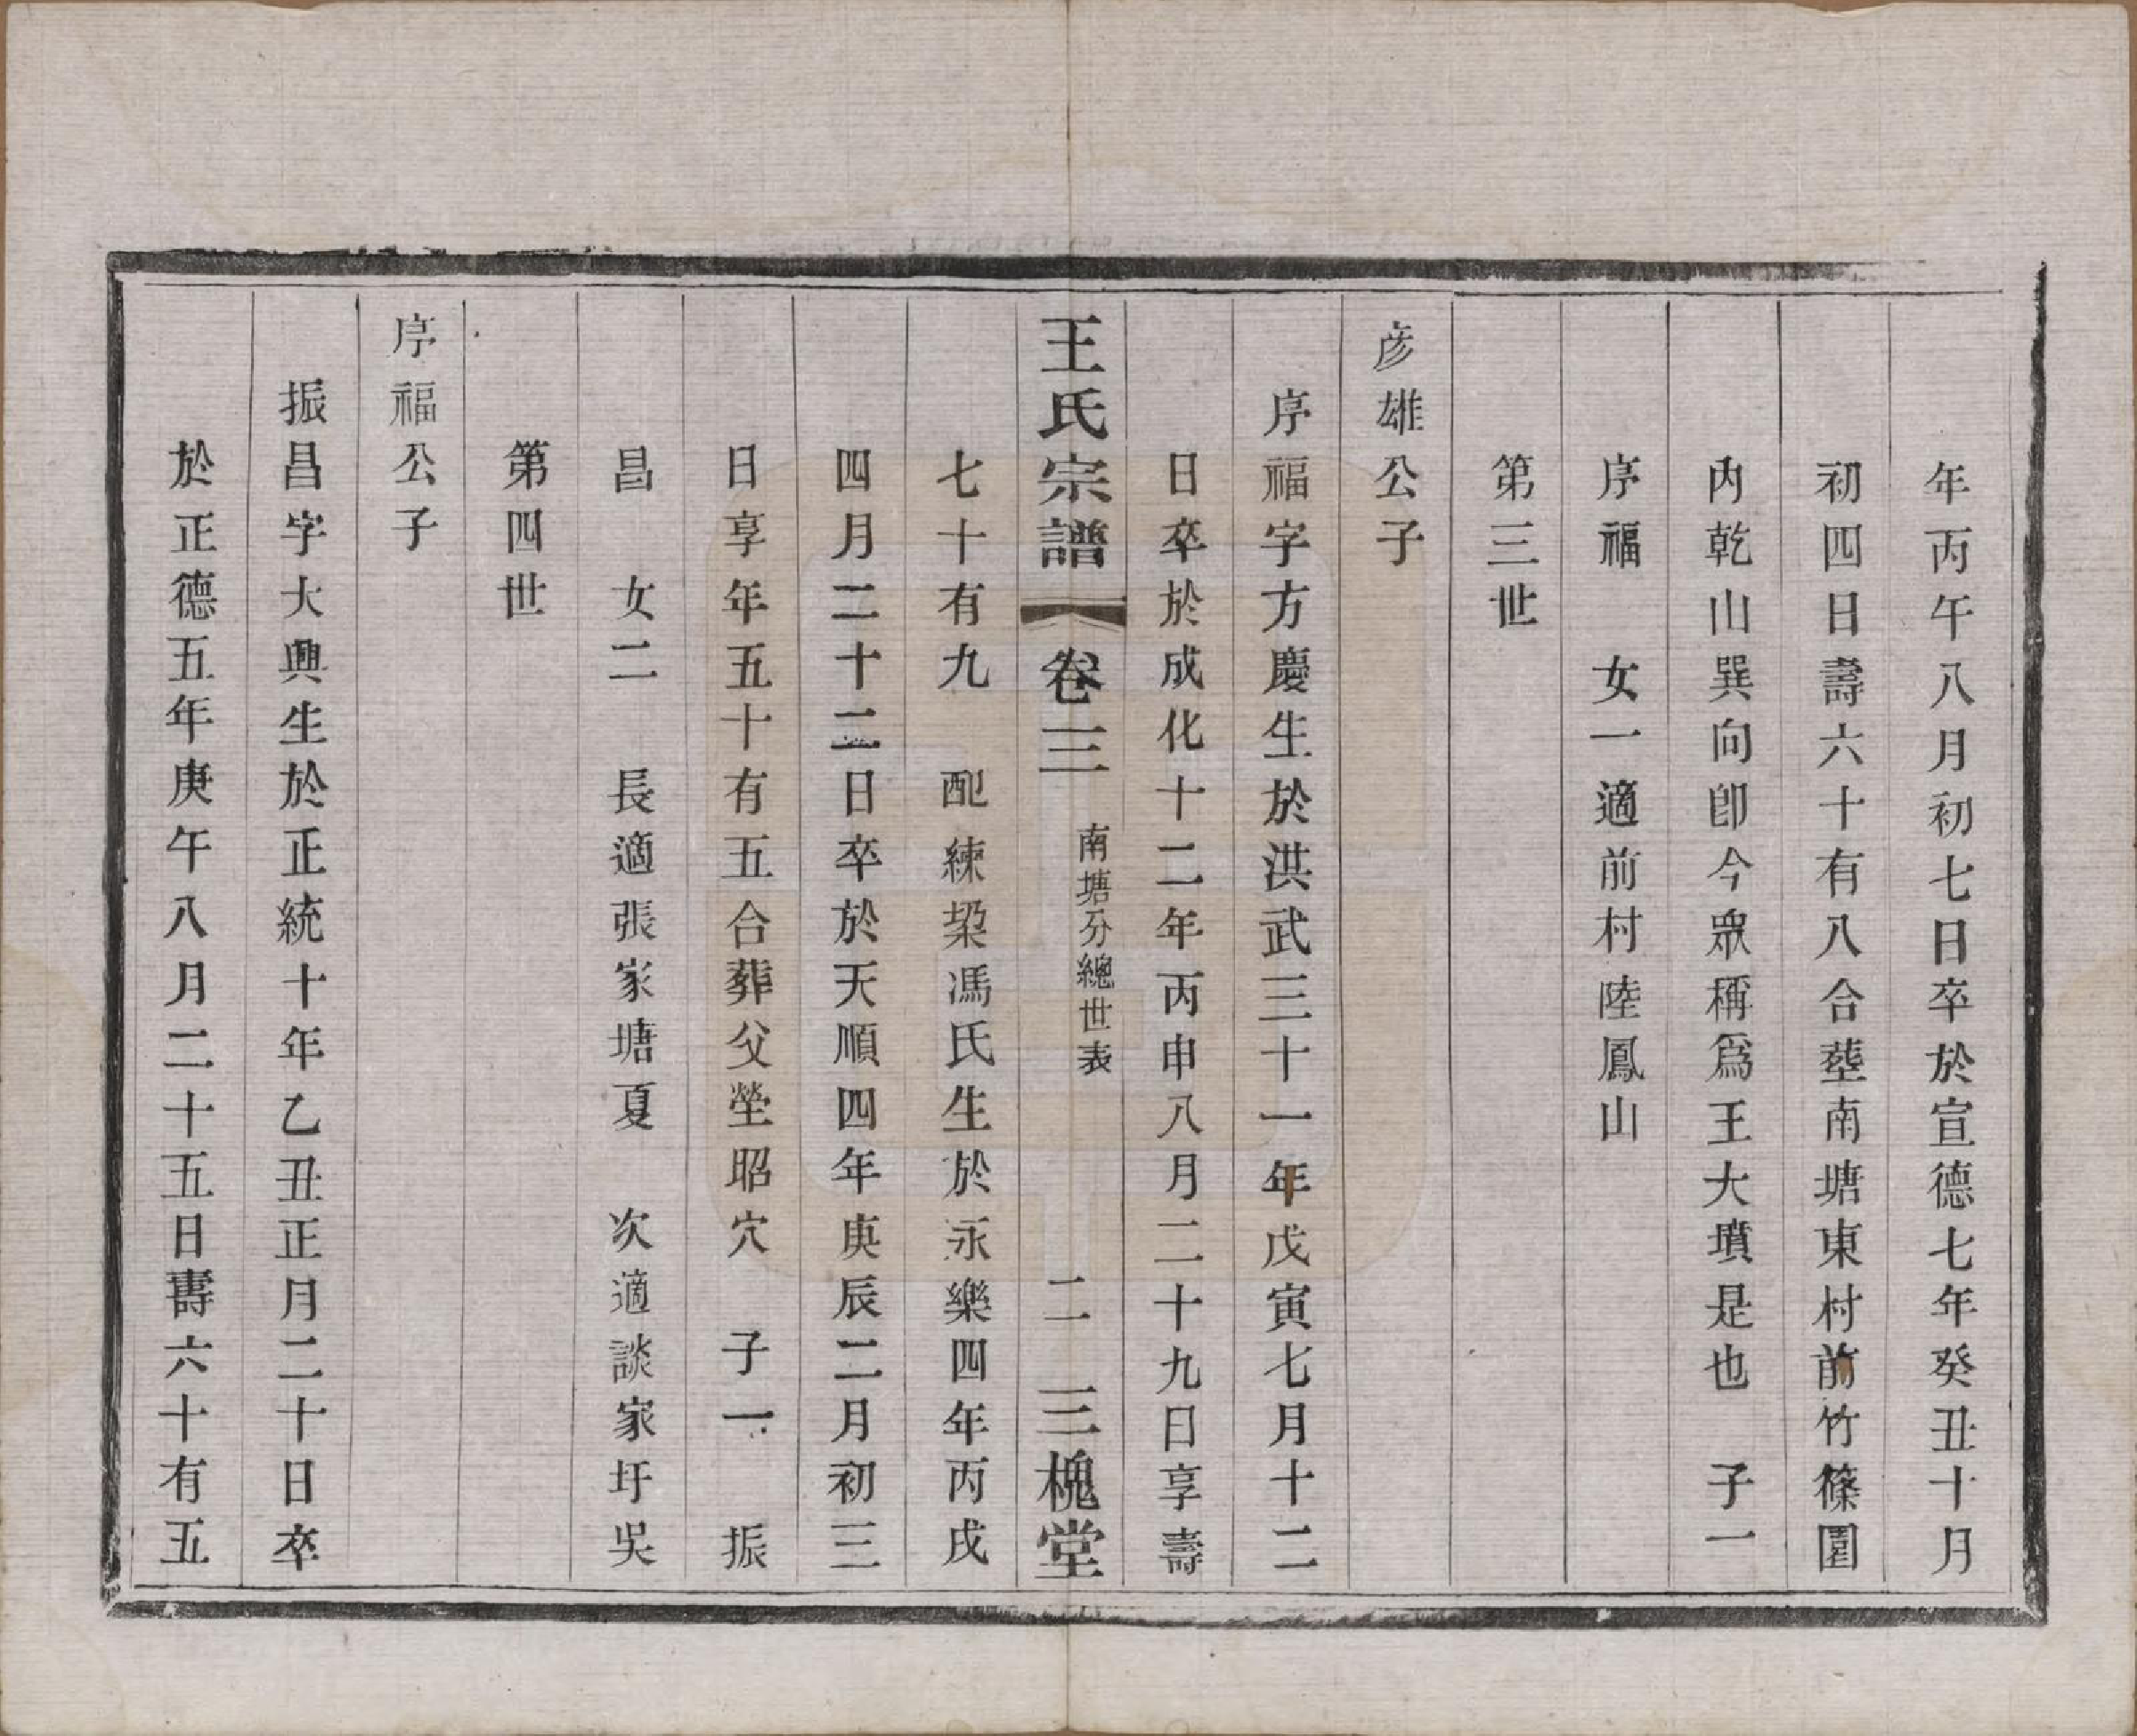 年丙午八月初七日卒於宣德七年癸丑十月
初四日壽六十有八合塟南塘東村前竹篠園
內乾山巽向卽今眾稱爲王大墳是也　子一
序福　女一適前村陸鳳山
第三世
彥雄公子
序福字方慶生於洪武三十一年戊寅七月十二
日卒於成化十二年丙申八月二十九日享壽
王氏宗譜　卷三　南塘分總世表　二　三槐堂
七十有九　配練梁馮氏生於永樂四年丙戌
四月二十二日卒於天順四年庚辰二月初三
日享年五十有五合葬父塋昭穴　子一　振
昌　女二　長適張家塘夏　次適談家圩吳
第四世
序福公子
振昌字大興生於正統十年乙丑正月二十日卒
於正德五年庚午八月二十五日壽六十有五